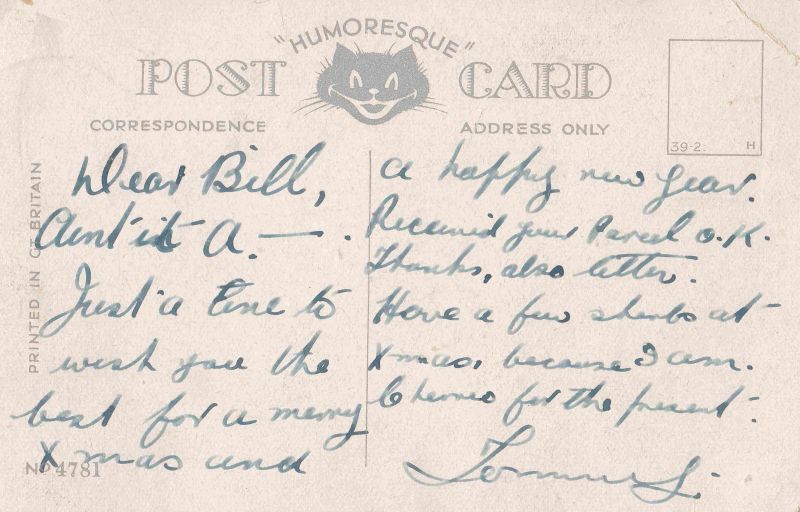 "HUMORESQUE"
POST CARD
CORRESPONDENCE
ADDRESS ONLY
39-2. H
PRINTED IN GT BRITAIN
Dear Bill,
Aint it A. — .
Just a line to
wish you the
best for a merry
Xmas and
No 4781
a happy new year.
Received your Parcel O.K.
Thanks, also letter.
Have a few sherbs at
Xmas, because I am.
Cheerio for the present.